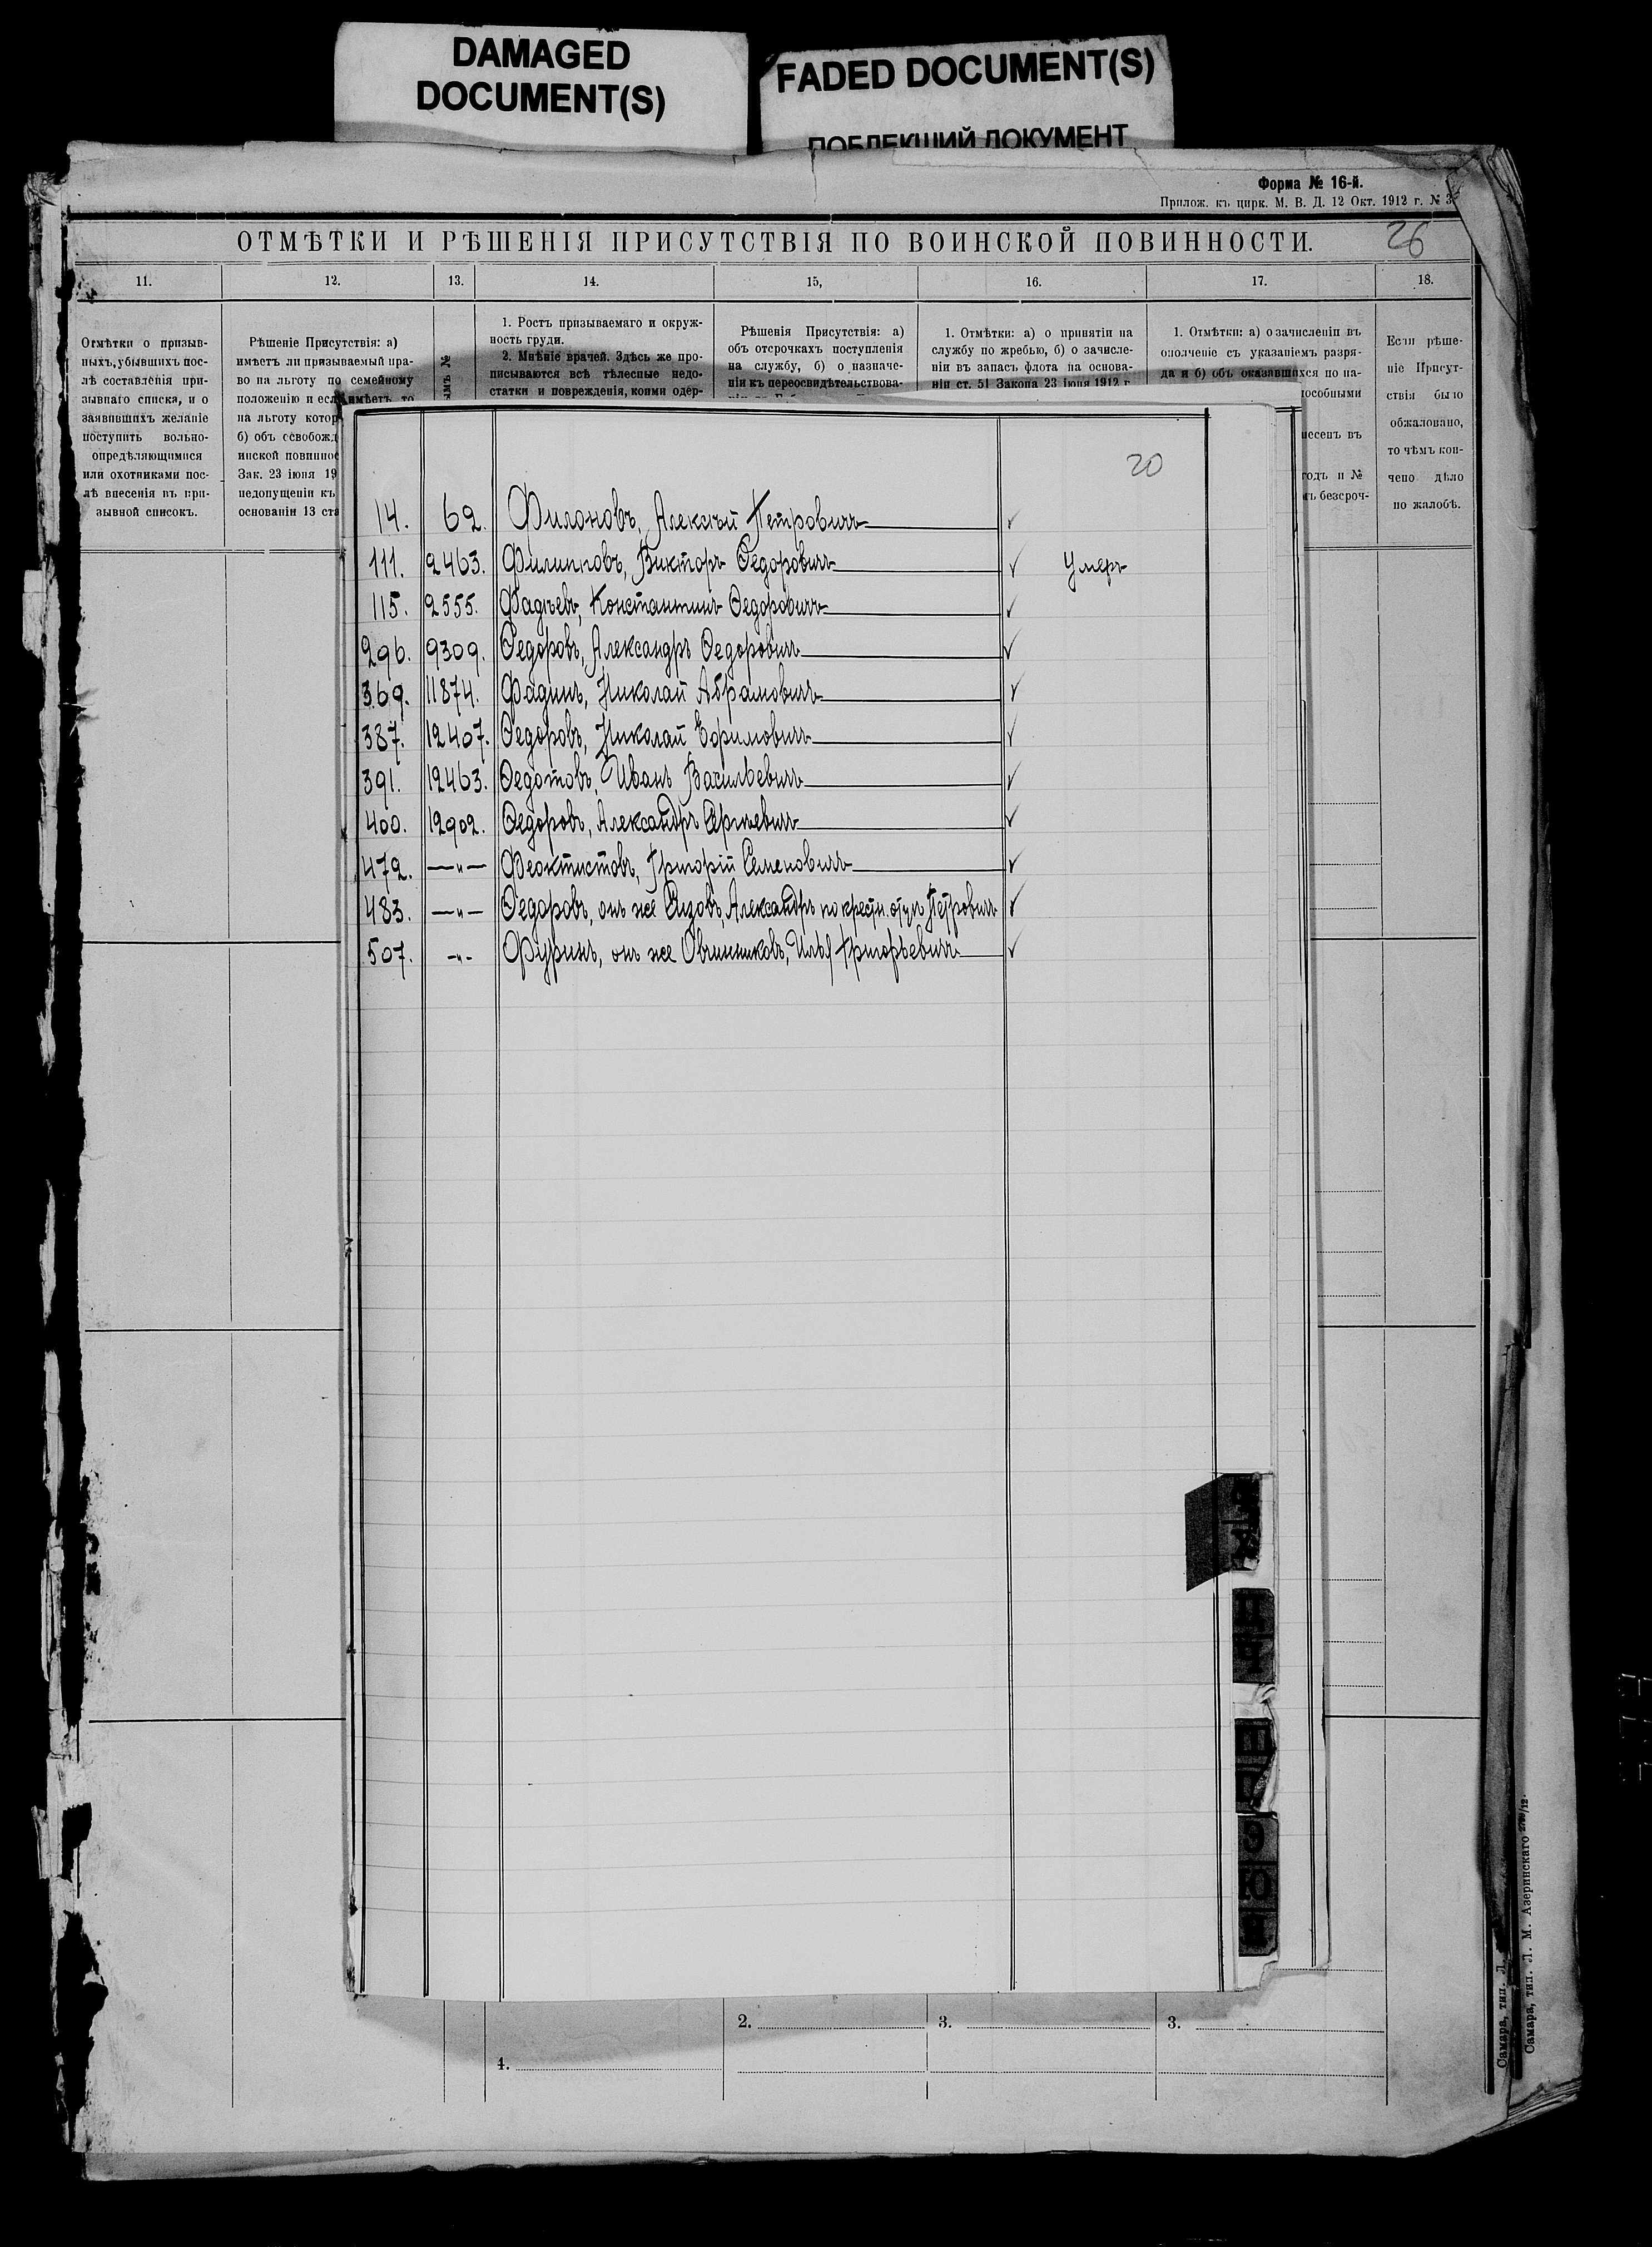 DAMAGED
DOCUMENT(S)
FADED DOCUMENT(S)
ПОБЛЕКШИЙ ДОКУМЕНТ
Форма № 16-й.
Прилож. къ цирк. М. В. Д. 12 Окт. 1912 г. № 3
ОТМѢТКИ И РѢШЕНІЯ ПРИСУТСТВІЯ ПО ВОИНСКОЙ ПОВИННОСТИ.
26
11.
12.
13.
14.
15,
16.
17.
18.
Отмѣтки о призыв-
ныхъ, убывшихъ пос-
лѣ составленія при-
зывнаго списка, и о
заявившихъ желаніе
поступить вольно-
опредѣляющимися
или охотниками пос-
лѣ внесенія въ при-
зывной списокъ.
Рѣшеніе Присутствія: а)
имѣетъ ли призываемый пра-
во на льготу по семейному
положенію и если имѣетъ, то
на льготу котор
б) объ освобожд
инской повиннос
Зак. 23 іюня 19
недопущеніи къ
основаніи 13 ста
ымъ №
1. Ростъ призываемаго и окруж-
ность груди.
2. Мнѣніе врачей. Здѣсь же про-
писываются всѣ тѣлесные недо-
статки и поврежденія, коими одер-
Рѣшенія Присутствія: а)
объ отсрочкахъ поступленія
на службу, б) о назначе-
ніи къ переосвидѣтельствова-
1. Отмѣтки: а) о принятіи на
службу по жребью, б) о зачисле-
ніи въ запасъ флота на основа-
ніи ст. 51 Закона 23 іюня 1912 г.
1. Отмѣтки: а) о зачисленіи въ
ополченіе съ указаніемъ разря-
да и б) объ оказавшихся по на-
пособными
несенъ въ
годъ и №
мъ безсроч-
Если рѣше-
ніе Присут-
ствія было
обжаловано,
то чѣмъ кон-
чено дѣло
по жалобѣ.
20
14. 62. Филоновъ, Алексѣй Петровичъ
111. 2463. Филипповъ, Викторъ Ѳедоровичъ Умеръ
115. 2555. Фадѣевъ, Константинъ Ѳедоровичъ
296. 9309. Ѳедоровъ, Александръ Ѳедоровичъ
369. 11874. Фадинъ, Николай Абрамовичъ
387. 12407. Ѳедоровъ, Николай Ефимовичъ
391. 12463. Ѳедотовъ, Иванъ Васильевичъ
400. 12902. Ѳедоровъ, Александръ Сергѣевичъ
472. —"— Феоктистовъ, Григорій Семеновичъ
483. —"— Ѳедоровъ, онъ же Сизовъ, Александръ по крестн. отцу Петровичъ
507. -"- Фуринъ, онъ же Овчинниковъ, Илья Григорьевичъ
Ш
Э
Ю
Я
2.
3.
3.
4.
Самара, тип. Л.
Самара, тип. Л. М. Азеринскаго